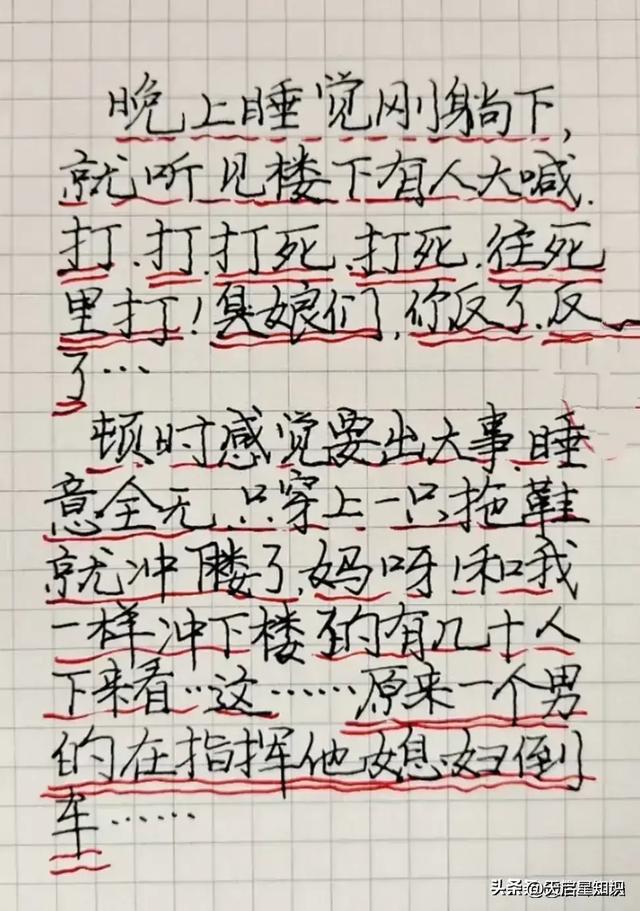 晚上睡觉刚躺下,
就听见楼下有人大喊.
打.打.打死.打死.往死
里打!臭娘们,你反了.反
了…
顿时感觉要出大事.睡
意全无.只穿上一只拖鞋
就冲下楼了.妈呀!和我
一样冲下楼的有几十人
下来看…这……原来一个男
的在指挥他媳妇倒
车……
头条@天启星知识